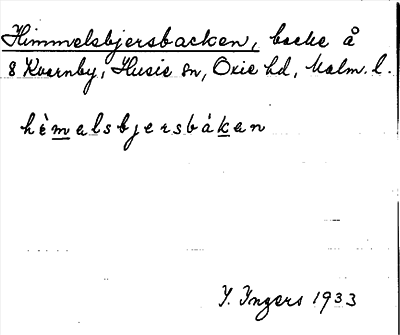 Himmelsbjersbacken, backe å
8 Kvarnby, Husie sn, Oxie hd, Malm. l.
hèmelsbjersbáken
I. Ingers 1933